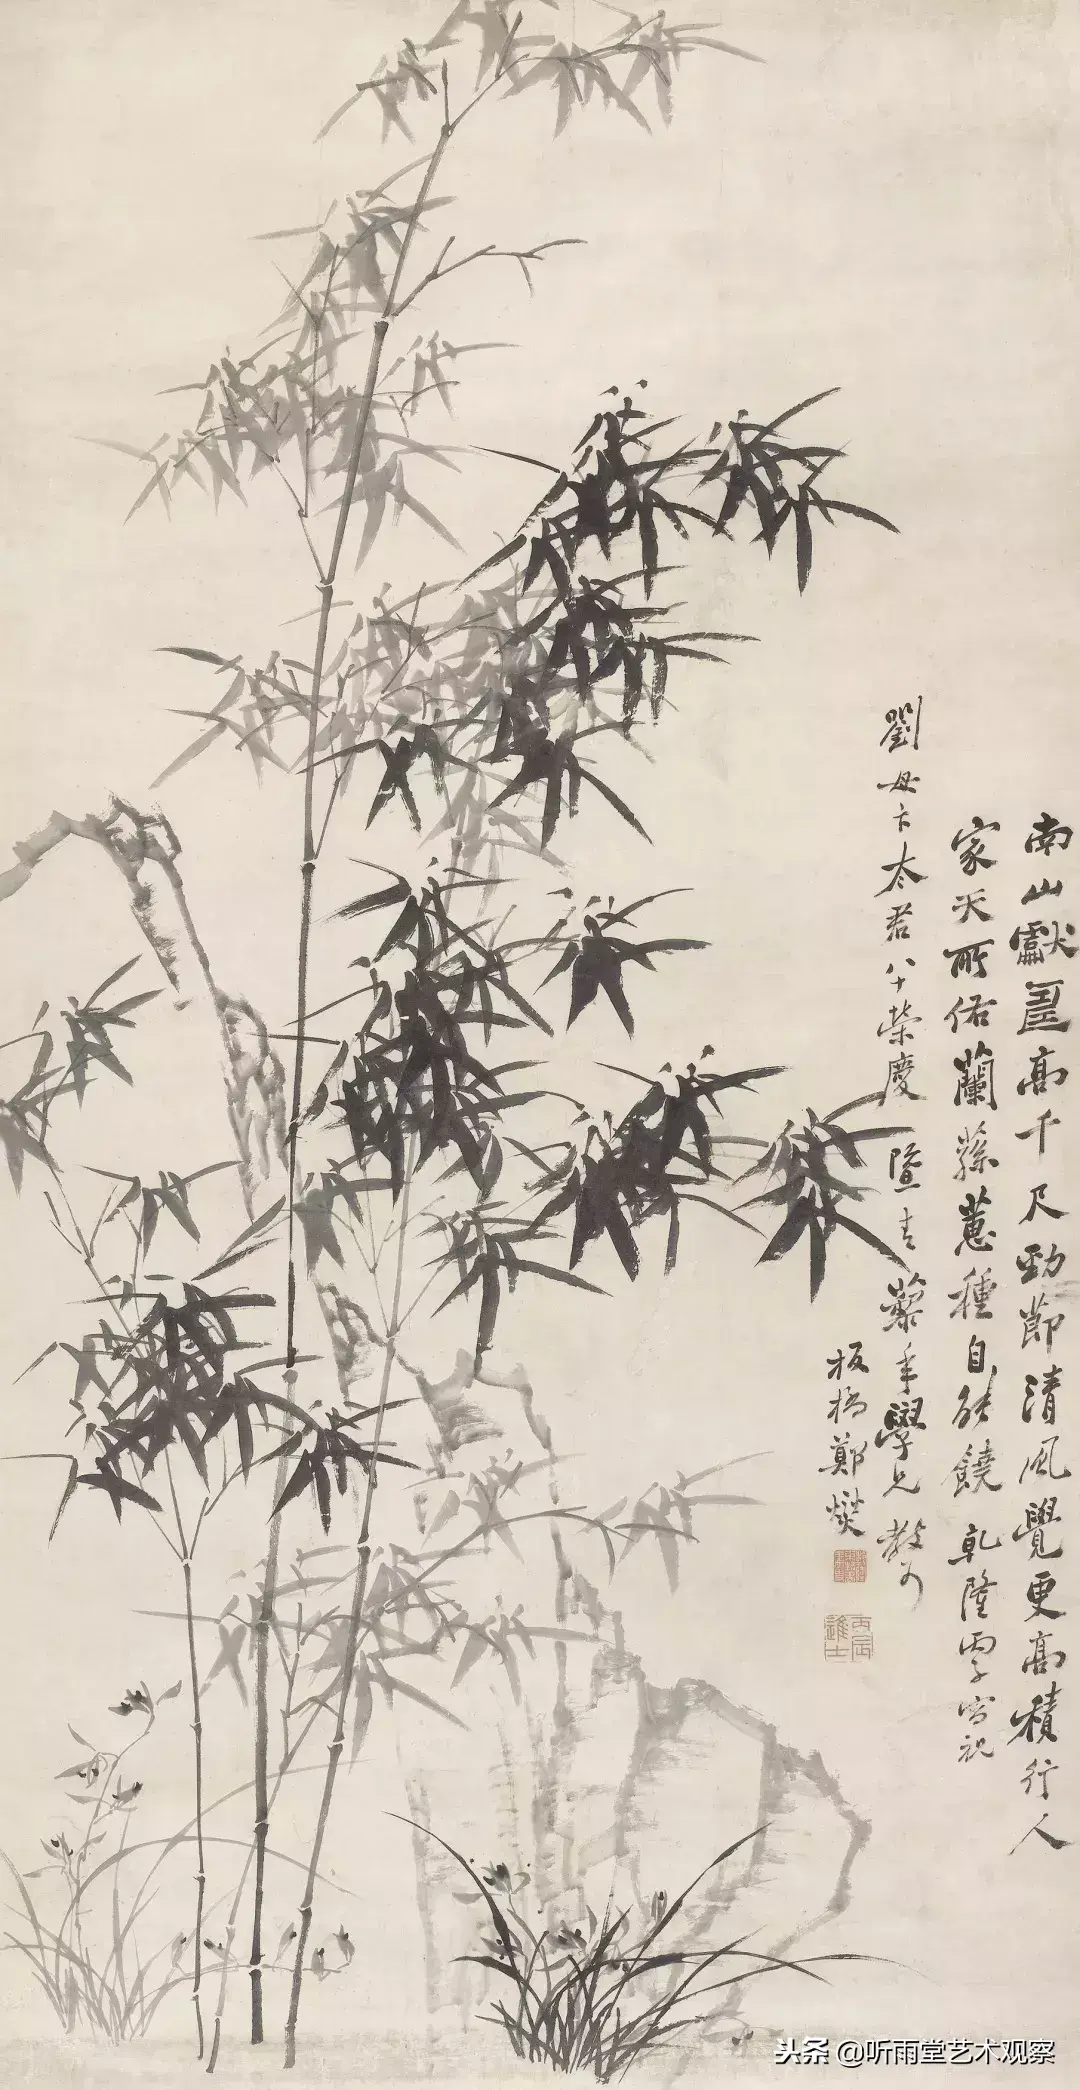 南山獻壽高千尺勁節清風覺更高積行人
家天所佑蘭蓀蕙種自能饒 乾隆 寫祝
劉母卞太君八十榮慶 暨青藜年學兄教可
板橋鄭燮
丙辰進士
头条 @听雨堂艺术观察